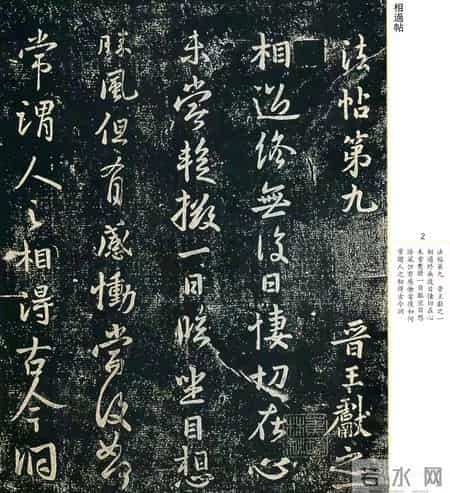 相過帖
法帖第九 晉王獻之
相過終無復日悽切在心
未嘗暫撥一日臨坐目想
勝風但有感慟當復如何
常謂人之相得古今洞
2
法帖第九 晉王獻之一
相過終無復日悽切在心
未嘗暫撥一日臨坐目想
勝風但有感慟當復如何
常謂人之相得古今洞
若水网